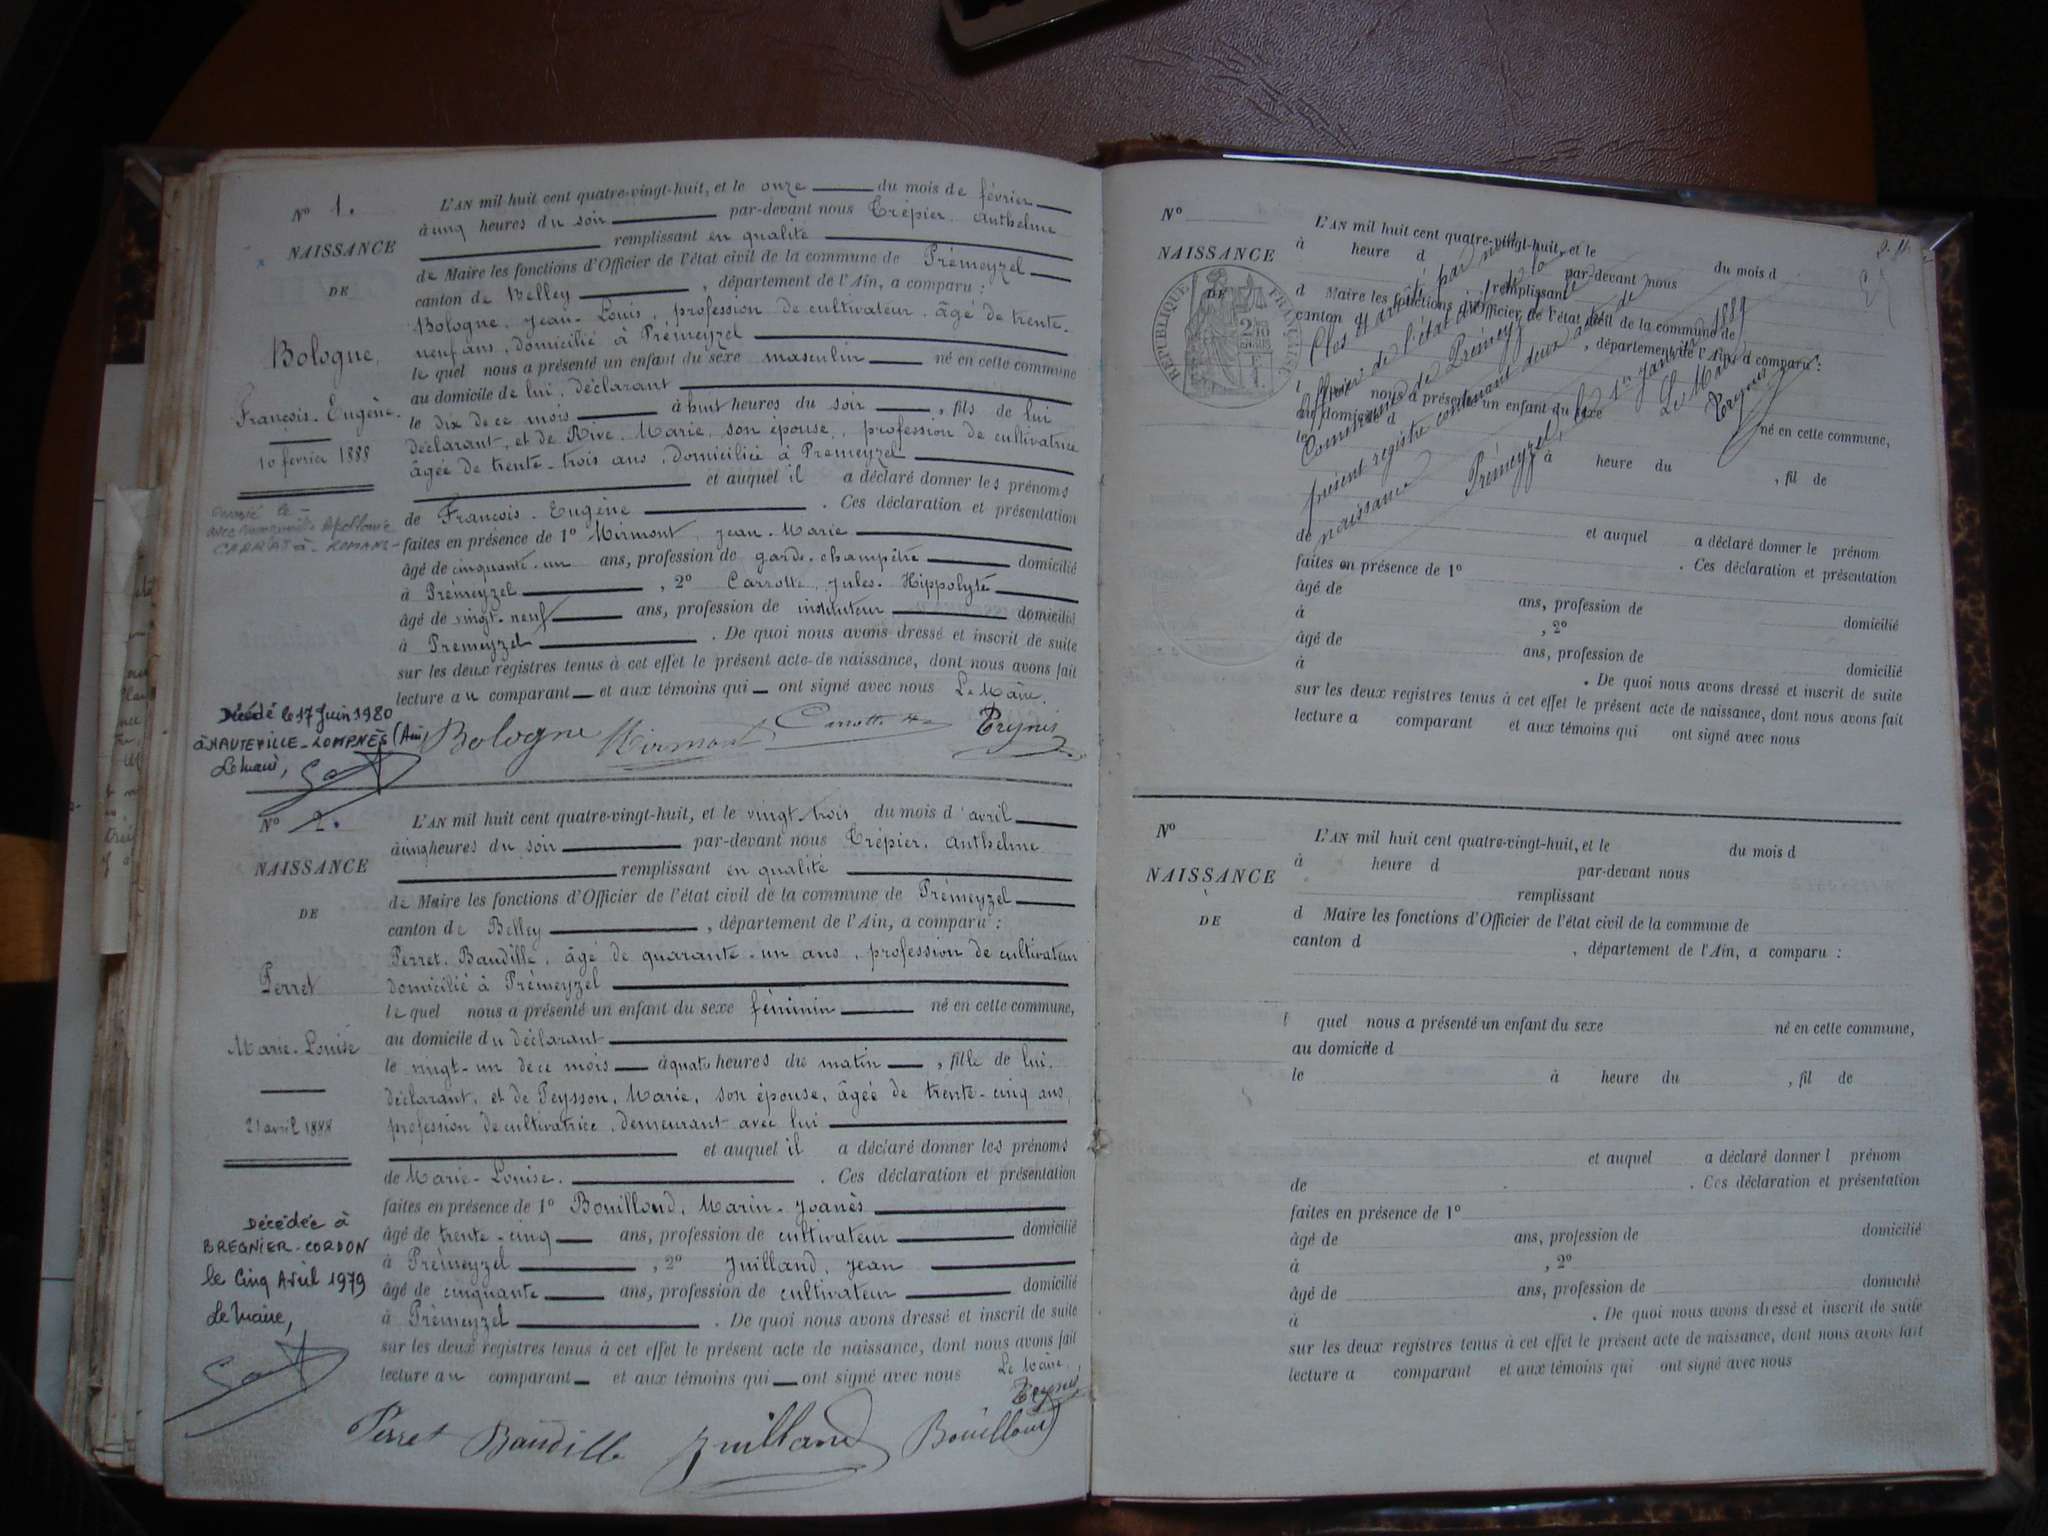 N° 1.
NAISSANCE
DE
Bologne,
François-Eugène.
10 février 1888
CARRAT à ROMANS
Décédé le 17 Juin 1980
à HAUTEVILLE-LOMPNÈS (Ain)
Le Maire,
L'AN mil huit cent quatre-vingt-huit, et le onze du mois de février
à cinq heures du soir par-devant nous Trépier Anthelme
remplissant en qualité
de Maire les fonctions d'Officier de l'état civil de la commune de Prémeyzel
canton de Belley, département de l'Ain, a comparu :
Bologne, Jean-Louis, profession de cultivateur, âgé de trente-
neuf ans, domicilié à Prémeyzel
le quel nous a présenté un enfant du sexe masculin né en cette commune
au domicile de lui, déclarant
le dix de ce mois à huit heures du soir, fils de lui
déclarant, et de Rive, Marie, son épouse, profession de cultivatrice
âgée de trente-trois ans, domiciliée à Prémeyzel
et auquel il a déclaré donner les prénoms
de François-Eugène. Ces déclaration et présentation
faites en présence de 1° Mirmont, Jean-Marie
âgé de cinquante-un ans, profession de garde-champêtre domicilié
à Prémeyzel, 2° Carrotte, Jules-Hippolyte
âgé de vingt-neuf ans, profession de instituteur domicilié
à Prémeyzel. De quoi nous avons dressé et inscrit de suite
sur les deux registres tenus à cet effet le présent acte de naissance, dont nous avons fait
lecture au comparant et aux témoins qui ont signé avec nous Le Maire.
Bologne Mirmont Carrotte Trépier
N° 2.
NAISSANCE
DE
Perret
Marie-Louise
21 avril 1888
Décédée à
BREGNIER-CORDON
le Cinq Avril 1979
Le Maire,
L'AN mil huit cent quatre-vingt-huit, et le vingt-trois du mois d'avril
à cinq heures du soir par-devant nous Trépier, Anthelme
remplissant en qualité
de Maire les fonctions d'Officier de l'état civil de la commune de Prémeyzel
canton de Belley, département de l'Ain, a comparu :
Perret, Baudille, âgé de quarante-un ans, profession de cultivateur
domicilié à Prémeyzel
le quel nous a présenté un enfant du sexe féminin né en cette commune,
au domicile du déclarant
le vingt-un de ce mois à quatre heures du matin, fille de lui,
déclarant, et de Peysson, Marie, son épouse, âgée de trente-cinq ans,
profession de cultivatrice, demeurant avec lui
et auquel il a déclaré donner les prénoms
de Marie-Louise. Ces déclaration et présentation
faites en présence de 1° Bouilloud, Marin-Joanès
âgé de trente-cinq ans, profession de cultivateur domicilié
à Prémeyzel, 2° Juilland, Jean
âgé de cinquante ans, profession de cultivateur domicilié
à Prémeyzel. De quoi nous avons dressé et inscrit de suite
sur les deux registres tenus à cet effet le présent acte de naissance, dont nous avons fait
lecture au comparant et aux témoins qui ont signé avec nous Le Maire,
Trépier
Perret Baudille Juilland Bouilloud
N°
NAISSANCE
DE
RÉPUBLIQUE FRANÇAISE
L'AN mil huit cent quatre-vingt-huit, et le du mois d
à heure d par-devant nous
remplissant
d Maire les fonctions d'Officier de l'état civil de la commune de
canton d, département de l'Ain, a comparu :
l quel nous a présenté un enfant du sexe né en cette commune,
au domicile d
le à heure du, fil de
et auquel a déclaré donner le prénom
de. Ces déclaration et présentation
faites en présence de 1°
âgé de ans, profession de domicilié
à, 2°
âgé de ans, profession de domicilié
à. De quoi nous avons dressé et inscrit de suite
sur les deux registres tenus à cet effet le présent acte de naissance, dont nous avons fait
lecture a comparant et aux témoins qui ont signé avec nous
Clos et arrêté par nous
officier de l'état civil de la
Commune de Prémeyzel le
présent registre contenant deux actes de
naissance Prémeyzel, le 1er janvier 1889
Le Maire
Trépier
N°
NAISSANCE
DE
L'AN mil huit cent quatre-vingt-huit, et le du mois d
à heure d par-devant nous
remplissant
d Maire les fonctions d'Officier de l'état civil de la commune de
canton d, département de l'Ain, a comparu :
l quel nous a présenté un enfant du sexe né en cette commune,
au domicile d
le à heure du, fil de
et auquel a déclaré donner l prénom
de. Ces déclaration et présentation
faites en présence de 1°
âgé de ans, profession de domicilié
à, 2°
âgé de ans, profession de domicilié
à. De quoi nous avons dressé et inscrit de suite
sur les deux registres tenus à cet effet le présent acte de naissance, dont nous avons fait
lecture a comparant et aux témoins qui ont signé avec nous